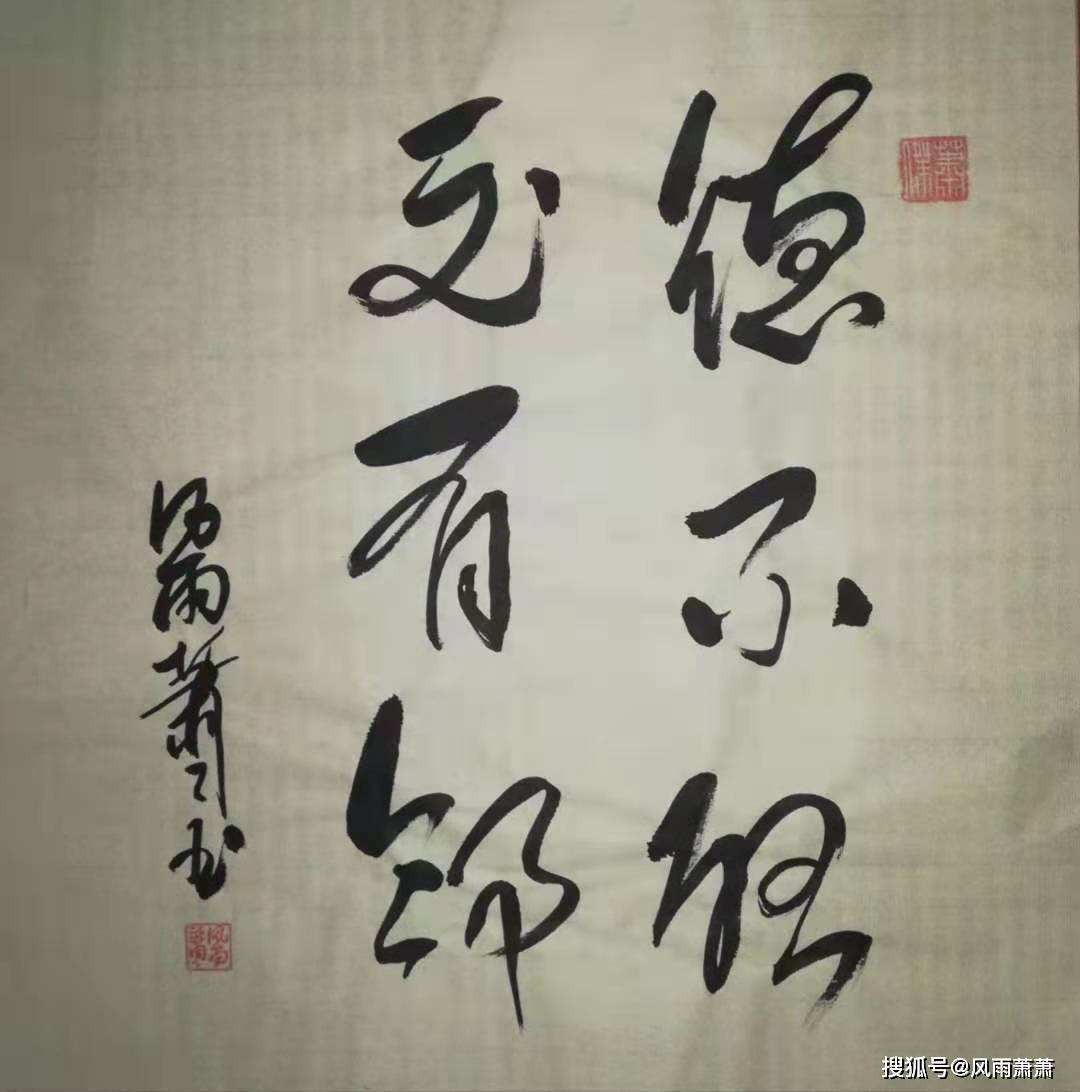 德不孤
必有邻
风雨萧萧书
搜狐号@风雨萧萧